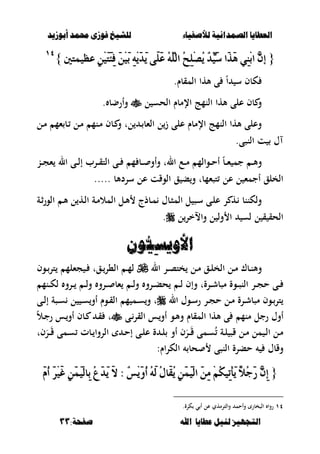 العطايا الصمدانية للأصفياء للشيخ فوزى محمد أبوزيد
{ إِنَّ ابْنِي هَذَا سَيِّدٌ يُصْلِحُ اللَّهُ عَلَى يَدَيْهِ بَيْنَ فِئَتَيْنِ عظيمتين } ١٤
فكان سيداً فى هذا المقام.
وكان على هذا النهج الإمام الحسين وأرضاه.
وعلى هذا النهج الإمام على زين العابدين، وكان منهم من تابعهم من
آل بيت النبى.
وهم جميعاً أحوالهم مع الله، وأوصافهم فى التقرب إلى الله يعجز
الخلق أجمعين عن تتبعها، ويضيق الوقت عن سردها .....
ولكننا نذكر على سبيل المثال نماذج لأهل الملامة الذين هم الورثة
الحقيقين لسيد الأولين والآخرين ﷺ.
الأويسيُّون
وهناك من الخلق من يختصر الله لهم الطريق، فيجعلهم يتربون
فى حجر النبوة مباشرة، وإن لم يحضروه ولم يعاصروه ولم يروه لكنهم
يتربون مباشرة من حجر رسول الله ﷺ، ويسميهم القوم أويسيين نسبة إلى
أول رجل منهم فى هذا المقام وهو أويس القرنى، فقد كان أويس رجلاً
من اليمن من قبيلة تُسمى قَرَن أو بلدة على إحدى الروايات تسمى قَرَن،
وقال فيه حضرة النبى لأصحابه الكرام:
{ إِنَّ رَجُلاً يَأْتِيكُمْ مِنَ الْيَمَنِ يُقَالُ لَهُ أُوَيْسٌ : لاَ يَدَعُ بِالْيَمَنِ غَيْرَ أُمٍّ
١٤ رواه البخارى وأحمد والترمذي عن أبي بكرة.
التجهيز لنيل عطايا الله صفحة:٣٣